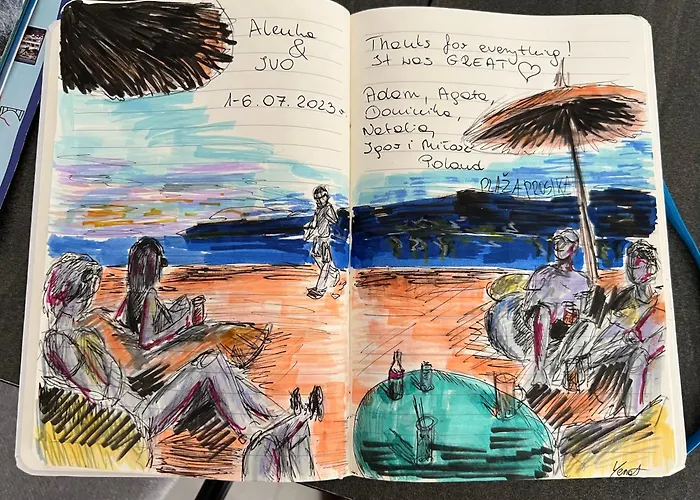 Alenka
&
IVO
1-6.07.2023r.
Thanks for everything!
It was GREAT ♡
Adam, Agata,
Dominika,
Natalia,
Igor i Miłosz
Poland
PLAŻA PROSIKA
Yenot